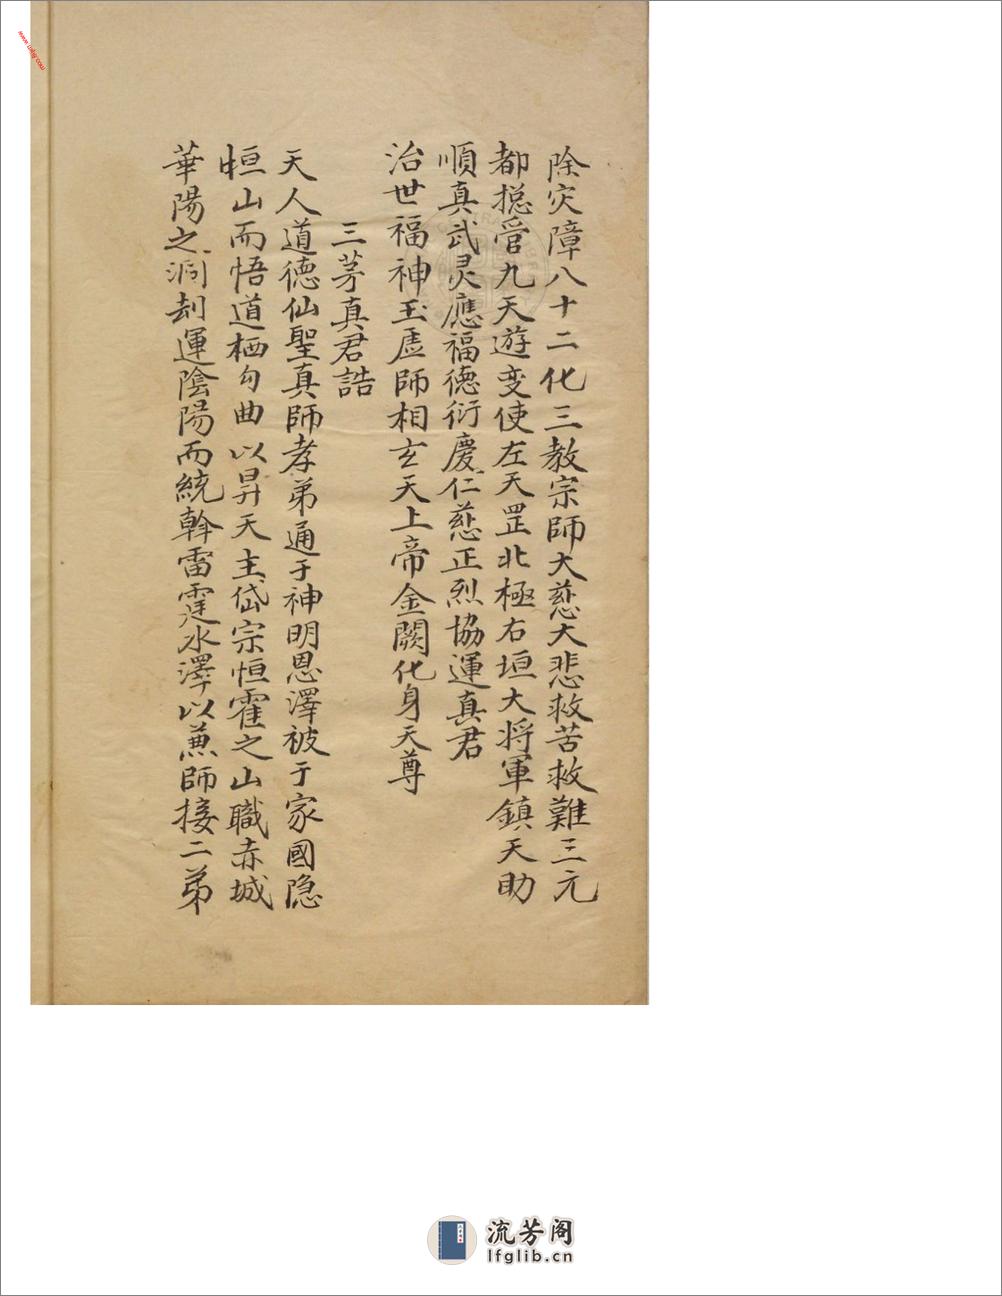 除灾障八十二化三教宗師大慈大悲救苦救難三元
都摠管九天遊变使左天罡北極右垣大将軍鎮天助
順真武灵應福德衍慶仁慈正烈協運真君
治世福神玉虛師相玄天上帝金闕化身天尊
三茅真君誥
天人道德仙聖真師孝弟通于神明恩澤被于家國隐
恒山而悟道栖勾曲以昇天主岱宗恒霍之山職赤城
華陽之洞刦運陰陽而統斡雷霆水澤以蕙師接二弟
www.lnfg.com
流芳阁
lfglib.cn